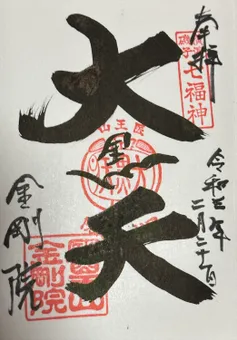 奉拝
磯子 七福神
令和三年
二月二十一日
医王山
大黒天
金剛院
金剛院